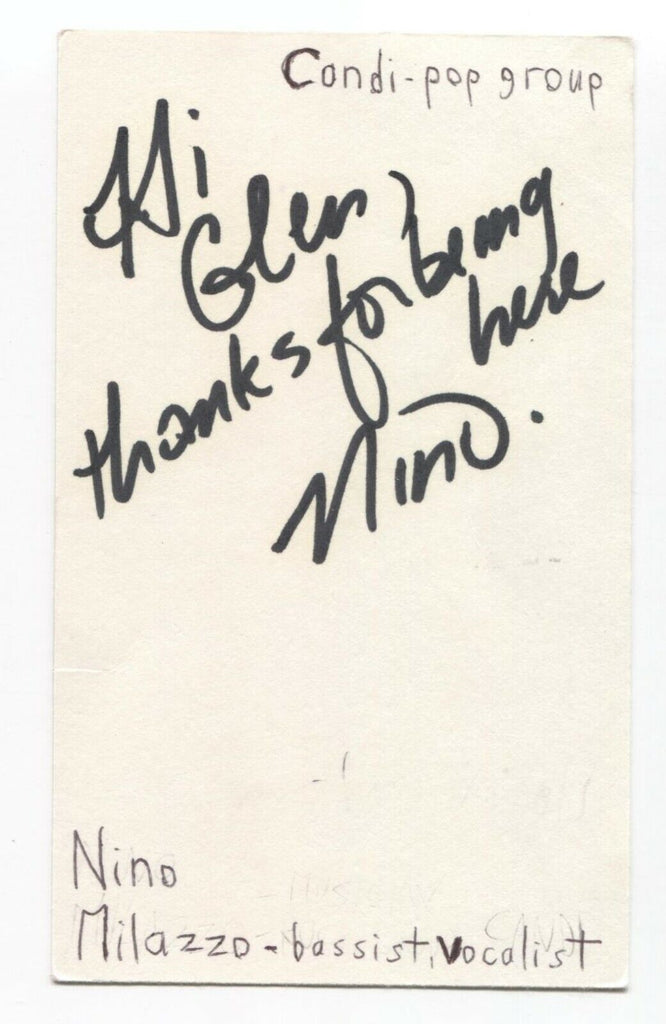 Candi-pop group
Hi
Glen
thanks for being
here
Nino.
Nino
Milazzo-bassist, vocalist